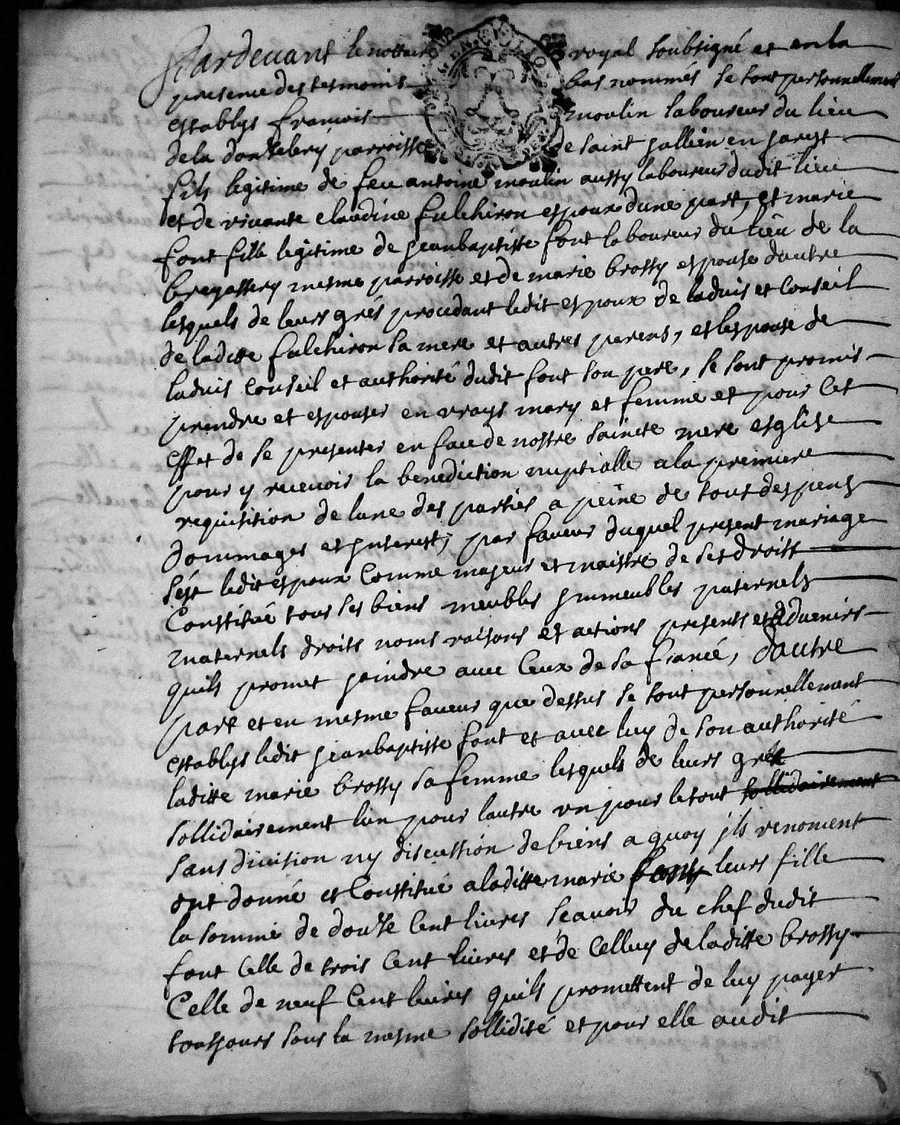 Pardevant le nottaire royal soubsigné et en la
presence des tesmoins bas nommés se sont personnellement
establys francois moulin laboureur du lieu
de la parroisse de saint jullien en jarest
fils legitime de feu antoine moulin aussy laboureur dudit lieu
et de vivante claudine fulchiron espoux dune part, et marie
font fille legitime de jeanbaptiste font laboureur du lieu de la
bregassery mesme parroisse et de marie brossy espouse dautre
lesquels de leurs grés procedant ledit espoux de ladvis et Conseil
de laditte fulchiron sa mere et autres parens, et lespouse de
laduis Conseil et authorité dudit font son pere, se sont promis
prendre et espouser en vrays mary et femme et pour Cet
effet de se presenter en face de nostre saincte mere esglise
pour y recevoir la benediction nuptialle a la premiere
requisition de lune des parties a peine de tous despens
dommages et jnterest, par faveur duquel present mariage
sest ledit espoux Comme majeur et maistre de ses droits
Constitué tous ses biens meubles jmmeubles paternels
maternels droits noms raisons et actions presents et advenirs
quils promet joindre avec Ceux de sa fiancé, dautre
part et en mesme faveur que dessus se sont personnellement
establys ledit jeanbaptiste font et avec luy de son authorité
laditte marie brossy sa femme lesquels de leurs grés
sollidairement lun pour lautre un pour le tout sollidairement
sans division ny discussion de biens a quoy jls renoncent
ont donné et Constitué a laditte marie leurs fille
la somme de douze Cent livres scavoir du chef dudit
font Celle de trois Cent livres et de Celluy de laditte brossy
Celle de neuf Cent livres quils promettent de luy payer
tousjours sous la mesme sollidité et pour elle audit